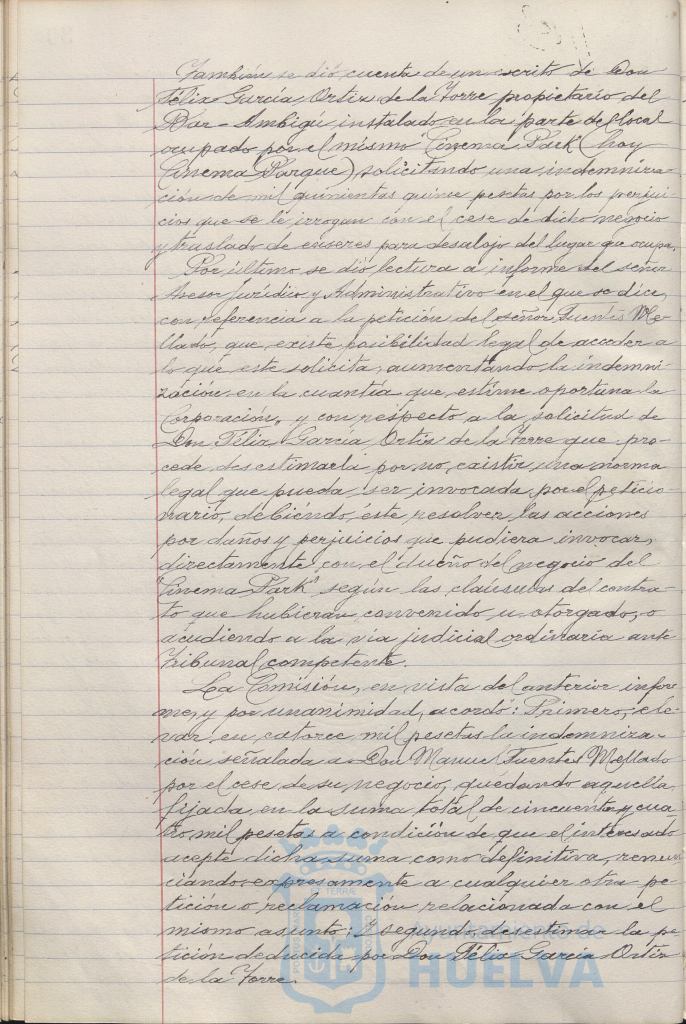 También se dió cuenta de un escrito de Don
Félix García Ortiz de la Torre propietario del
Bar-Ambigú instalado en la parte del local
ocupado por el mismo "Cinema Park" (hoy
Cinema Parque) solicitando una indemniza-
ción de mil quinientas quince pesetas por los perjui-
cios que se le irrogan con el cese de dicho negocio
y traslado de enseres para desalojo del lugar que ocupa.
Por último se dió lectura a informe del señor
Asesor Jurídico y Administrativo en el que se dice,
con referencia a la petición del señor Fuentes Me-
llado, que existe posibilidad legal de acceder a
lo que este solicita, aumentando la indemni-
zación en la cuantía que estime oportuna la
Corporación, y con respecto a la solicitud de
Don Félix García Ortiz de la Torre que pro-
cede desestimarla por no existir una norma
legal que pueda ser invocada por el peticio-
nario, debiéndo éste resolver las acciones
por daños y perjuicios que pudiera invocar,
directamente con el dueño del negocio del
"Cinema Park" según las cláusulas del contra-
to que hubieran convenido u otorgado, o
acudiendo a la vía judicial ordinaria ante
Tribunal competente.
La Comisión, en vista del anterior infor-
me, y por unanimidad, acordó: Primero, ele-
var en catorce mil pesetas la indemniza-
ción señalada a Don Manuel Fuentes Mellado
por el cese de su negocio, quedando aquella
fijada en la suma total de cincuenta y cua-
tro mil pesetas a condición de que el interesado
acepte dicha suma como definitiva, renun-
ciando expresamente a cualquier otra pe-
tición o reclamación relacionada con el
mismo asunto; Y segundo, desestimar la pe-
tición deducida por Don Félix García Ortiz
de la Torre.
Ayuntamiento de
HUELVA